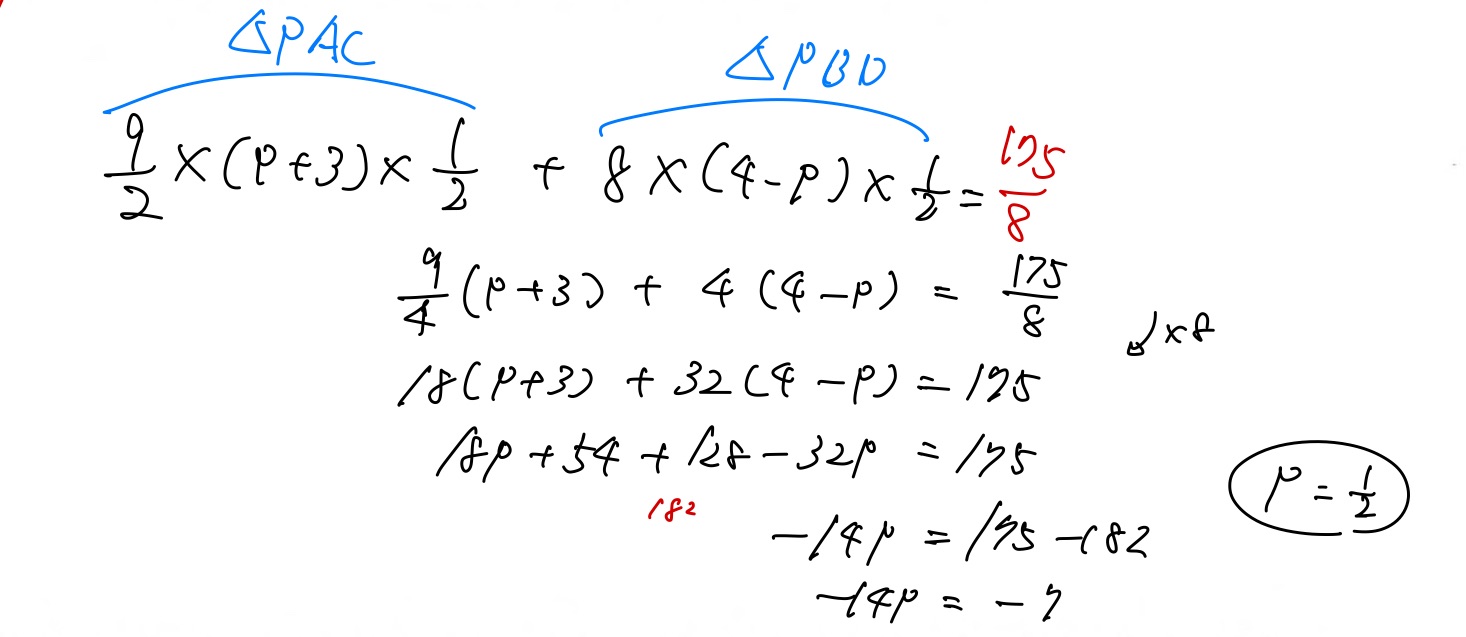 △PAC △PBD
9/2 × (P+3) × 1/2 + 8 × (4-P) × 1/2 = 175/8
9/4 (P+3) + 4 (4-P) = 175/8
×8
18(P+3) + 32(4-P) = 175
18P + 54 + 128 - 32P = 175
182
P = 1/2
-14P = 175 - 182
-14P = -7